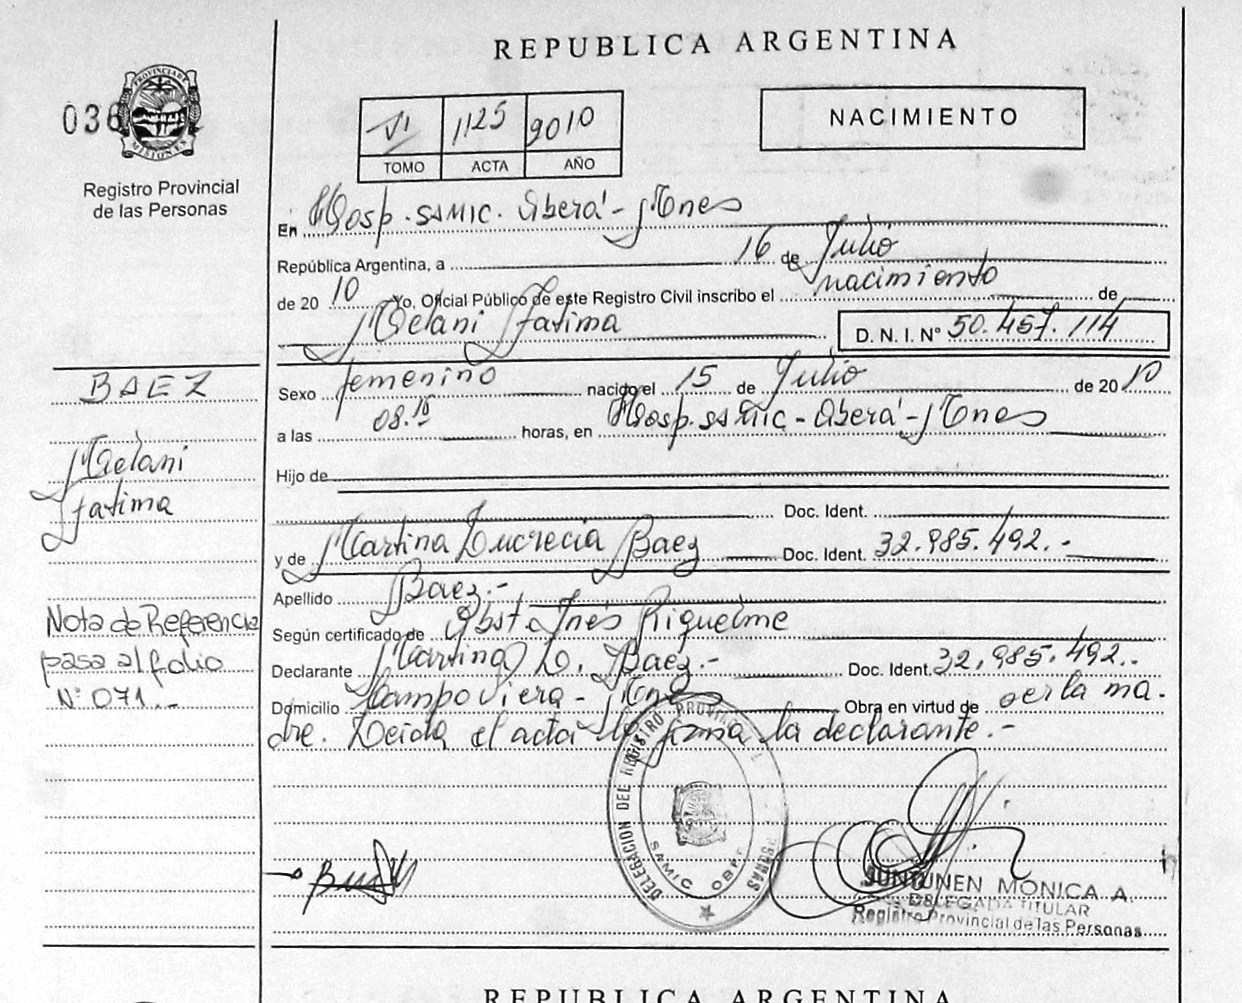 REPUBLICA ARGENTINA
036
PROVINCIA DE MISIONES
Registro Provincial
de las Personas
VI 1125 2010
TOMO ACTA AÑO
NACIMIENTO
En Hosp. SAMIC. Oberá - Mnes
República Argentina, a 16 de Julio
de 20 10 Yo, Oficial Público de este Registro Civil inscribo el nacimiento de
Melani Fatima D. N. I. N° 50.457.114
Sexo femenino nacido el 15 de Julio de 20 10
a las 08.15 horas, en Hosp. SAMIC - Oberá - Mnes
Hijo de
Doc. Ident.
y de Martina Lucrecia Baez Doc. Ident. 32.985.492.-
Apellido Baez.-
Según certificado de Obst. Inés Riquelme
Declarante Martina L. Baez.- Doc. Ident. 32.985.492.-
Domicilio Campo Viera - Mnes Obra en virtud de ser la ma-
dre. Leida el acta la firma la declarante.-
BAEZ
Melani
Fatima
Nota de Referencia
pasa al folio
N° 071.-
DELEGACION DEL REGISTRO PROVINCIAL PERSONAS
SAMIC OBERA
JUNTUNEN MONICA A.
DELEGADA TITULAR
Registro Provincial de las Personas
REPUBLICA ARGENTINA